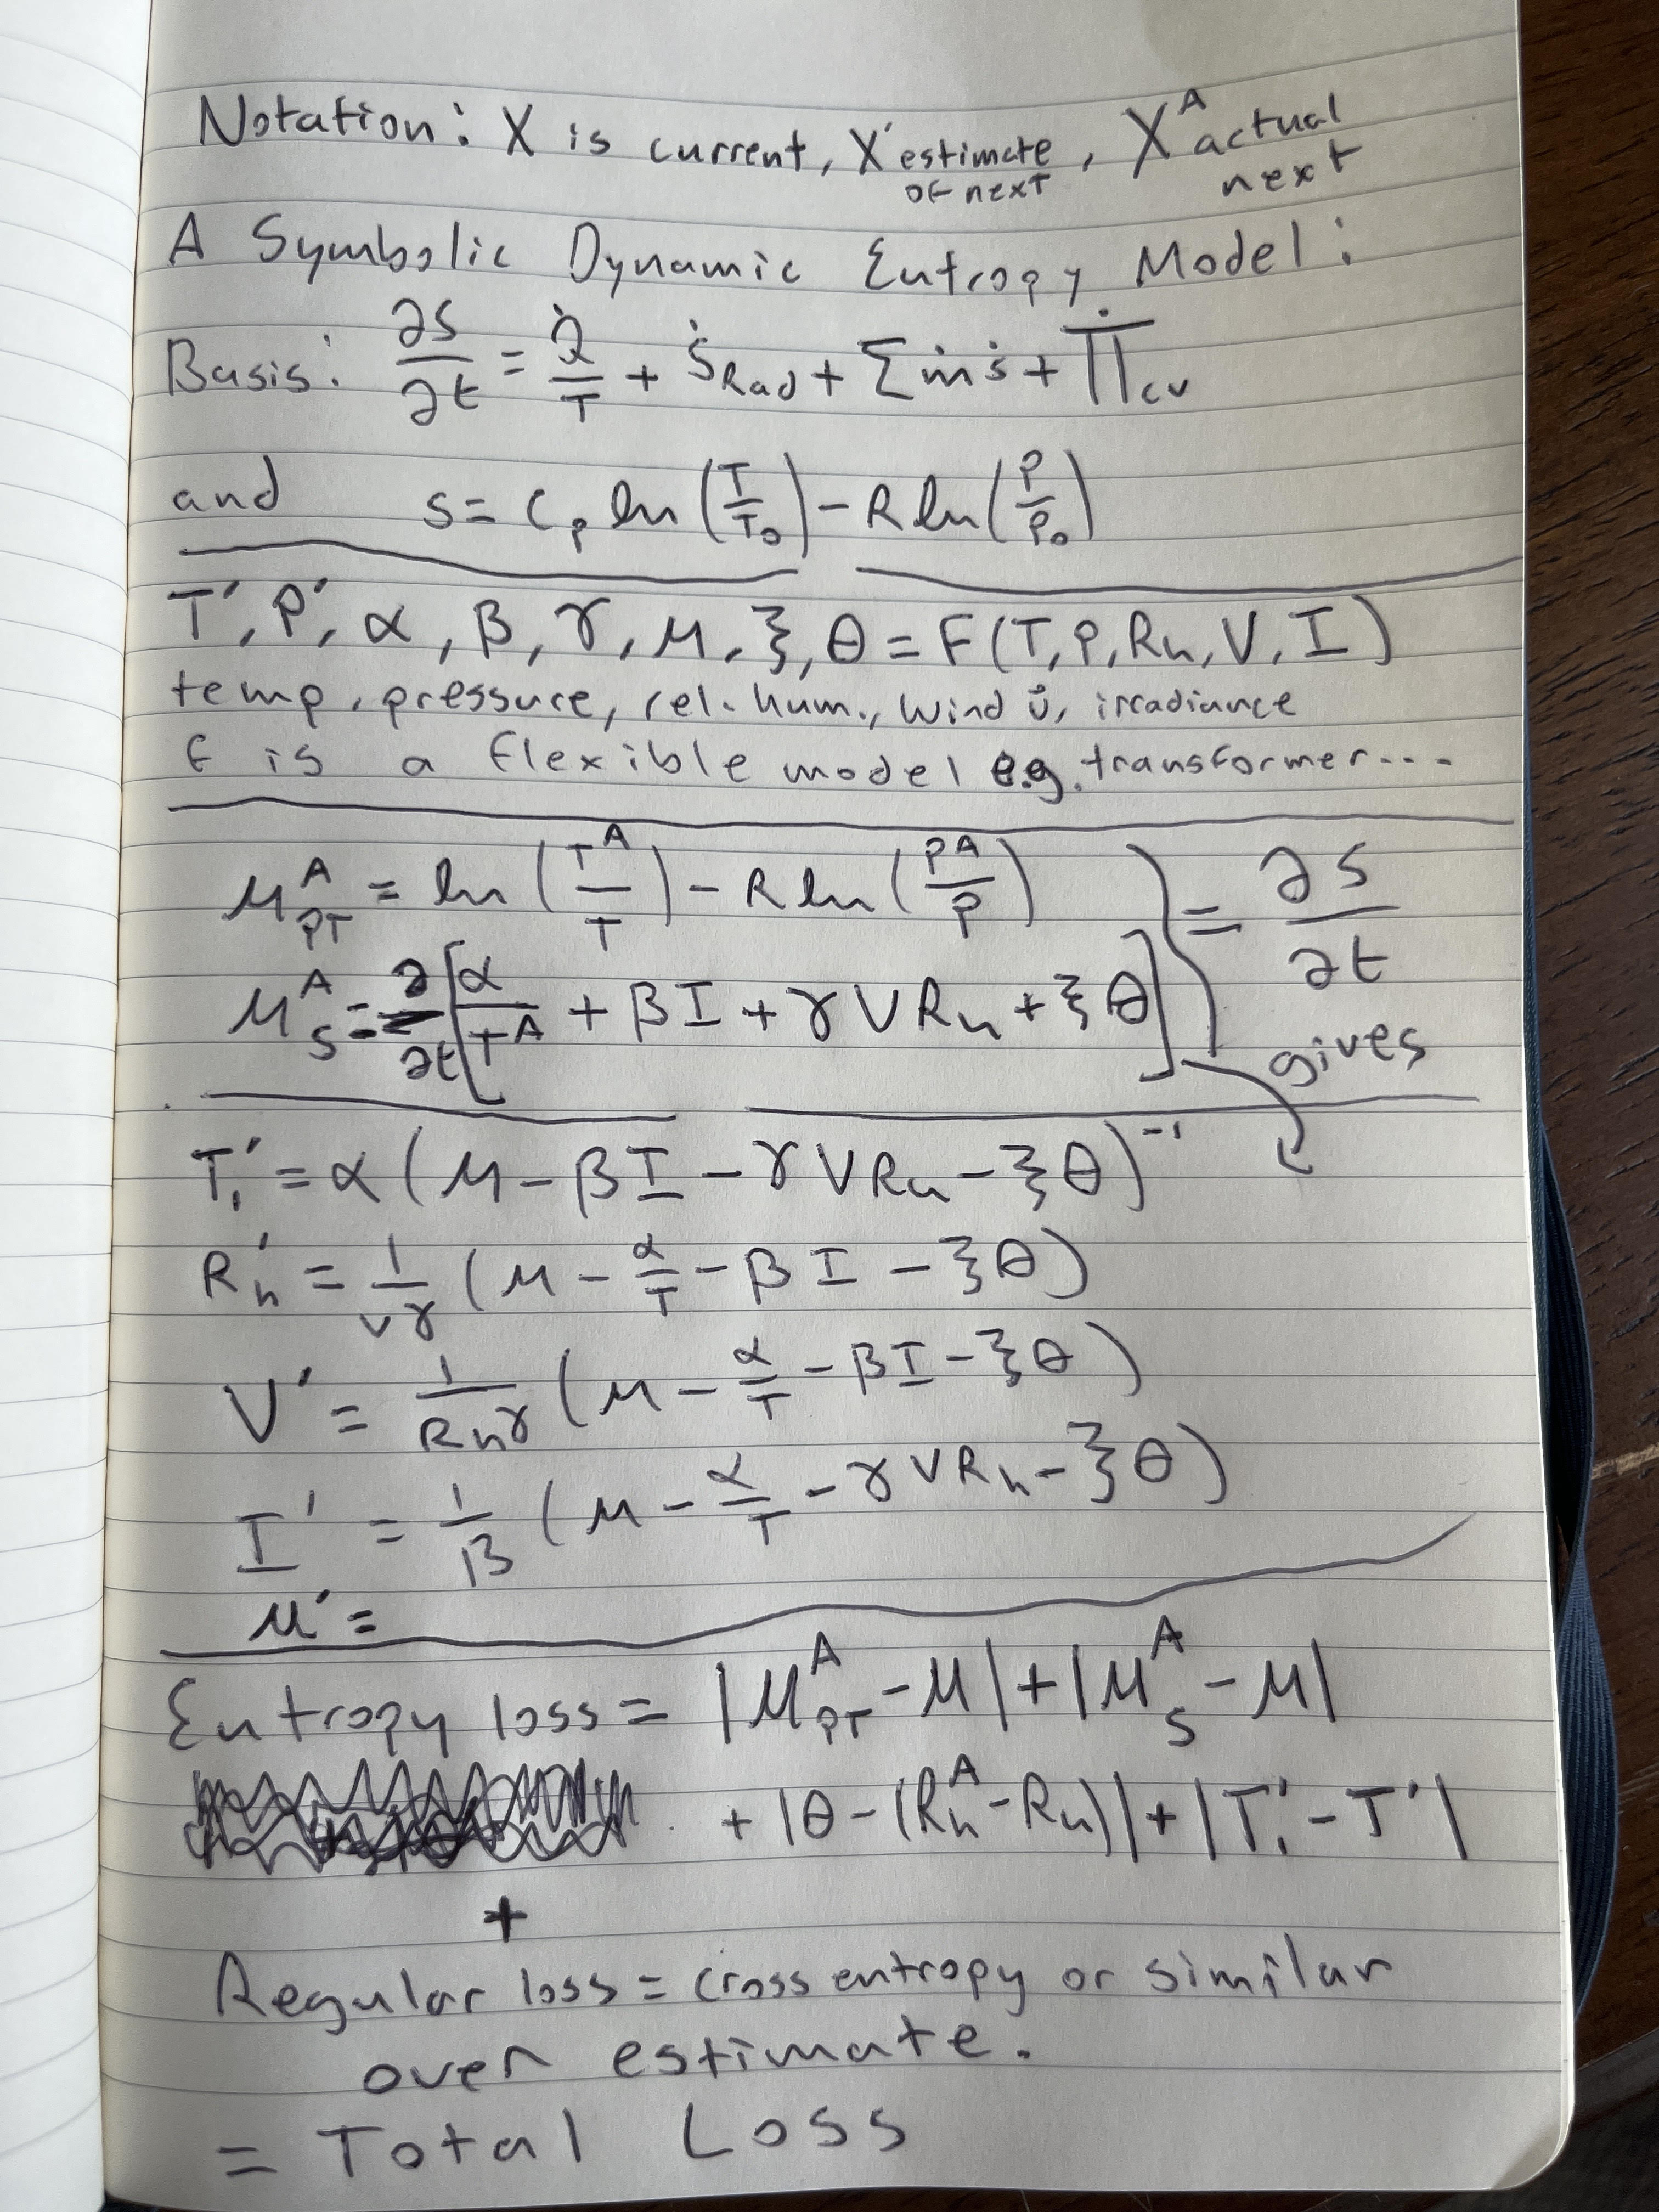 Notation: X is current, X′ estimate of next, Xᴬ actual next
A Symbolic Dynamic Entropy Model:
Basis: ∂S/∂t = Q̇/T + Ṡ_Rad + Σ ṁṡ + Π̇_cv
and s = C_p ln(T/T₀) − R ln(P/P₀)
T′, P′, α, β, γ, μ, ξ, θ = F(T, P, R_h, V, I)
temp, pressure, rel. hum., wind v̇, irradiance
F is a flexible model e.g. transformer...
μ^A_PT = ln(T^A/T) − R ln(P^A/P)
μ^A_S = ∂/∂t [α/T^A + βI + γVR_h + ξθ]
} = ∂S/∂t
gives
T₁′ = α(μ − βI − γVR_h − ξθ)⁻¹
R_h′ = 1/(Vγ) (μ − α/T − βI − ξθ)
V′ = 1/(R_hγ) (μ − α/T − βI − ξθ)
I′ = 1/β (μ − α/T − γVR_h − ξθ)
μ′ =
Entropy loss = |μ^A_PT − μ| + |μ^A_S − μ|
+ |θ − (R_h^A − R_h)| + |T₁′ − T′|
+
Regular loss = cross entropy or similar
over estimate.
= Total Loss